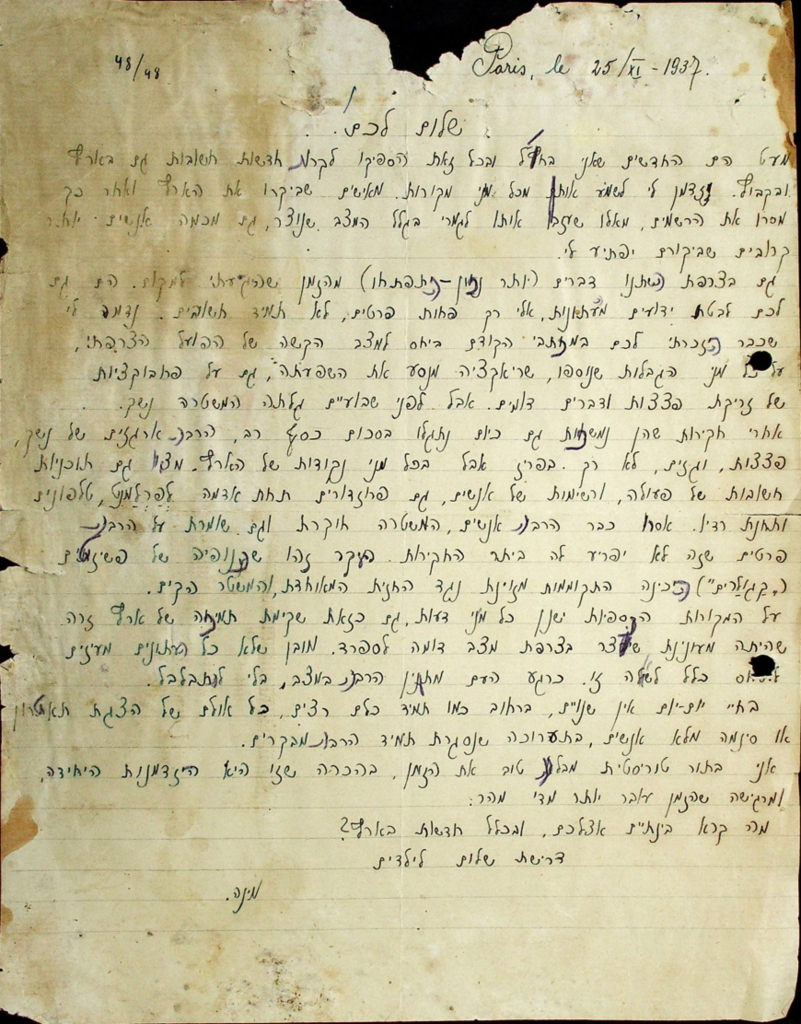 48/48
Paris, le 25/XI-1937.
שלום לכם.
מעט הם החדשים שאני בחו"ל ובכל זאת הספיקו לקרות חדשות חשובות גם בארץ
ובקבוץ. נזדמן לי לשמע אותן מכל מני מקורות. מאישים שביקרו את הארץ ואחר כך
מסרו את הרשמים, מאלו שעזבו אותו לגמרי בגלל המצב שנוצר, גם מכמה אנשים יותר
קרובים שביקורם יפתיע לי.
גם בצרפת נשתנו דברים (יותר נכון-התפתחו) מהזמן שהגעתי למקום. הם גם
לכם לבטח ידועים מעתונות, אלי רק פחות פרטים, לא תמיד חשובים. נדמה לי
שכבר הזכרתי לכם במכתבי הקודם ביחס למצב הקשה של הפועל הצרפתי,
על כל מני הגבלות שנוספו, שריאקציה מנסע את השפעתה, גם על פרובוקציות
של זריקת פצצות ודברים דומים. אבל לפני שבועיים גלתה המשטרה נשק.
אחרי חקירות שהן נמשכות גם כיום נתגלו בסכום כסף רב, הרבה ארגזים של נשק,
פצצות, וגזים, לא רק בפריז אבל בכל מני נקודות של הארץ. מצאו גם תוכניות
חשובות של פעולה, ורשימות של אנשים, גם פרוזדורים תחת אדמה לפרלמנט, טלפונים
ותחנת רדיו. אסרו כבר הרבה אנשים, המשטרה חוקרת וגם שומרת על הרבה
פרטים שזה לא יפריע לה ביתר החקירות. העקר זהו שקנוניה של פשיזטים
("קגולרים") הכינה התקוממות מזוינת נגד החזית המאוחדת, והמשטר הקים.
על המקורות הכספיות ישנן כל מני דעות, גם כזאת שקימת תמיכה של ארץ זרה.
שהיתה מעונינת שיוצר בצרפת מצב דומה לספרד. מובן שלא כל העתונים מעיזים
כלל לשאלה זו. כרגע העם מתענין הרבה במצב, בלי להתבלבל.
בחיי יום-יום אין שנויים, ברחוב כמו תמיד כלם רצים, כל אולם של הצגת תאטרון
או סינמה מלא אנשים, בתערוכה שנסגרת תמיד הרבה מבקרים.
אני בתור טוריסטית מבלה טוב את הזמן, בהכרה שזו היא הזדמנות היחידה,
ומרגישה שהזמן עובר יותר מדי מהר.
מה קרא בינתיים אצלכם, ובכלל חדשות בארץ?
דרישת שלום לילדים
מינה.